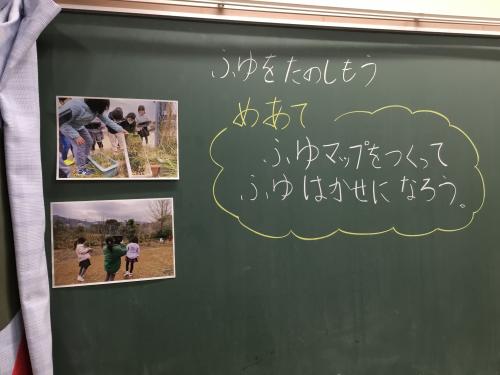 ふゆをたのしもう
めあて
ふゆマップをつくって
ふゆはかせになろう。